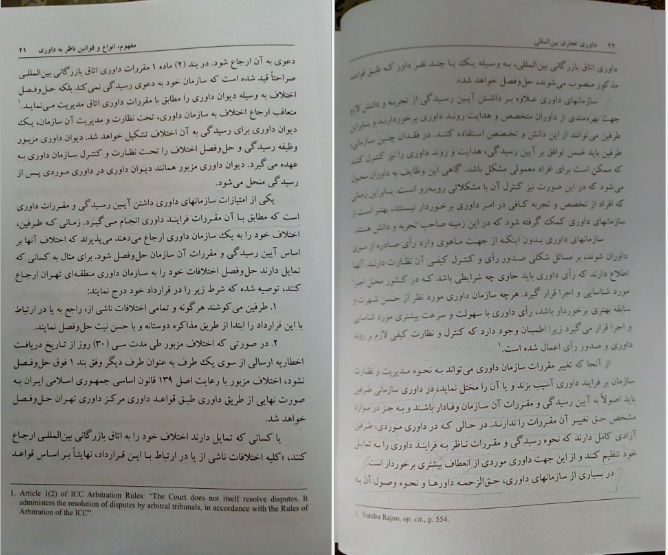 مفهوم، انواع و قوانین ناظر به داوری ۲۱
دعوی به آن ارجاع شود. در بند (۲) ماده ۱ مقررات داوری اتاق بازرگانی بین‌المللی
صراحتاً قید شده است که سازمان خود به دعوی رسیدگی نمی‌کند بلکه حل‌وفصل
اختلاف به وسیله دیوان داوری را مطابق با مقررات داوری اتاق مدیریت می‌نماید.۱
متعاقب ارجاع اختلاف به سازمان داوری، تحت نظارت و مدیریت آن سازمان، یک
دیوان داوری برای رسیدگی به آن اختلاف تشکیل خواهد شد. دیوان داوری مزبور
وظیفه رسیدگی و حل‌وفصل اختلاف را تحت نظارت و کنترل سازمان داوری به
عهده می‌گیرد. دیوان داوری مزبور همانند دیوان داوری در داوری موردی پس از
رسیدگی منحل می‌شود.
یکی از امتیازات سازمانهای داوری داشتن آیین رسیدگی و مقررات داوری
است که مطابق با آن مقررات فرایند داوری انجام می‌گیرد. زمانی که طرفین،
اختلاف خود را به یک سازمان داوری ارجاع می‌دهند، می‌پذیرند که اختلاف آنها بر
اساس آیین رسیدگی و مقررات آن سازمان حل‌وفصل شود. برای مثال به کسانی که
تمایل دارند حل‌وفصل اختلافات خود را به سازمان داوری منطقه‌ای تهران ارجاع
کنند، توصیه شده که شرط زیر را در قرارداد خود درج نمایند:
۱. طرفین می‌کوشند هرگونه و تمامی اختلافات ناشی از، راجع به یا در ارتباط
با این قرارداد را ابتدا از طریق مذاکره دوستانه و با حسن نیت حل‌وفصل نمایند.
۲. در صورتی که اختلاف مزبور طی مدت سی (۳۰) روز از تاریخ دریافت
اخطاریه ارسالی از سوی یک طرف به عنوان طرف دیگر وفق بند ۱ فوق حل‌وفصل
نشود، اختلاف مزبور با رعایت اصل ۱۳۹ قانون اساسی جمهوری اسلامی ایران به
صورت نهایی از طریق داوری طبق قواعد داوری مرکز داوری تهران حل‌وفصل
خواهد شد.
یا کسانی که تمایل دارند اختلاف خود را به اتاق بازرگانی بین‌المللی ارجاع
کنند، «کلیه اختلافات ناشی از یا در ارتباط با این قرارداد، نهایتاً بر اساس قواعد
1. Article 1(2) of ICC Arbitration Rules: "The Court does not itself resolve disputes. It
administers the resolution of disputes by arbitral tribunals, in accordance with the Rules of
Arbitration of the ICC".
۲۲ داوری تجاری بین‌المللی
داوری اتاق بازرگانی بین‌المللی، به وسیله یک یا چند نفر داور که طبق قواعد
مذکور منصوب می‌شوند، حل‌وفصل خواهد شد».
سازمانهای داوری علاوه بر داشتن آیین رسیدگی از تجربه و دانش لازم
جهت بهره‌مندی از داوران متخصص و هدایت روند داوری برخوردارند و بنابراین
طرفین می‌توانند از این دانش و تخصص استفاده کنند. در فقدان چنین سازمانی،
طرفین باید ضمن توافق بر آیین رسیدگی، هدایت و روند داوری را نیز کنترل کنند
که ممکن است برای افراد معمولی مشکل باشد. گاهی این وظایف به داوران محول
می‌شود که در این صورت نیز کنترل آن با مشکلاتی روبه‌رو است. بنابراین زمانی
که افراد از تخصص و تجربه کافی در امر داوری برخوردار نیستند، بهتر است از
سازمانهای داوری کمک گرفته شود که در این زمینه صاحب تجربه و دانش هستند
سازمانهای داوری بدون اینکه از جهت ماهوی وارد رأی صادره از سوی
داوران شوند، بر مسائل شکلی صدور رأی و کنترل کیفی آن نظارت دارند. آنها
اطلاع دارند که رأی داوری باید حاوی چه شرایطی باشد که در کشور محل اجرا
مورد شناسایی و اجرا قرار گیرد. هرچه سازمان داوری مورد نظر از حسن شهرت و
سابقه بهتری برخوردار باشد، رأی داوری با سهولت و سرعت بیشتری مورد شناسایی
و اجرا قرار می‌گیرد زیرا اطمینان وجود دارد که کنترل و نظارت کیفی لازم بر روند
داوری و صدور رأی اعمال شده است.۱
از آنجا که تغییر مقررات سازمان داوری می‌تواند به نحوه مدیریت و نظارت
سازمان بر فرایند داوری آسیب بزند و یا آن را مختل نماید، در داوری سازمانی طرفین
باید اصولاً به آیین رسیدگی و مقررات آن سازمان وفادار باشند و به جز در موارد
مشخص حق تغییر آن مقررات را ندارند. در حالی که در داوری موردی، طرفین
آزادی کامل دارند که نحوه رسیدگی و مقررات ناظر به فرایند داوری را به تمایل
خود تنظیم کنند و از این جهت داوری موردی از انعطاف بیشتری برخوردار است.
در بسیاری از سازمانهای داوری، حق‌الزحمه داورها و نحوه وصول آن به
1. Sundra Rajoo, op. cit., p. 554.